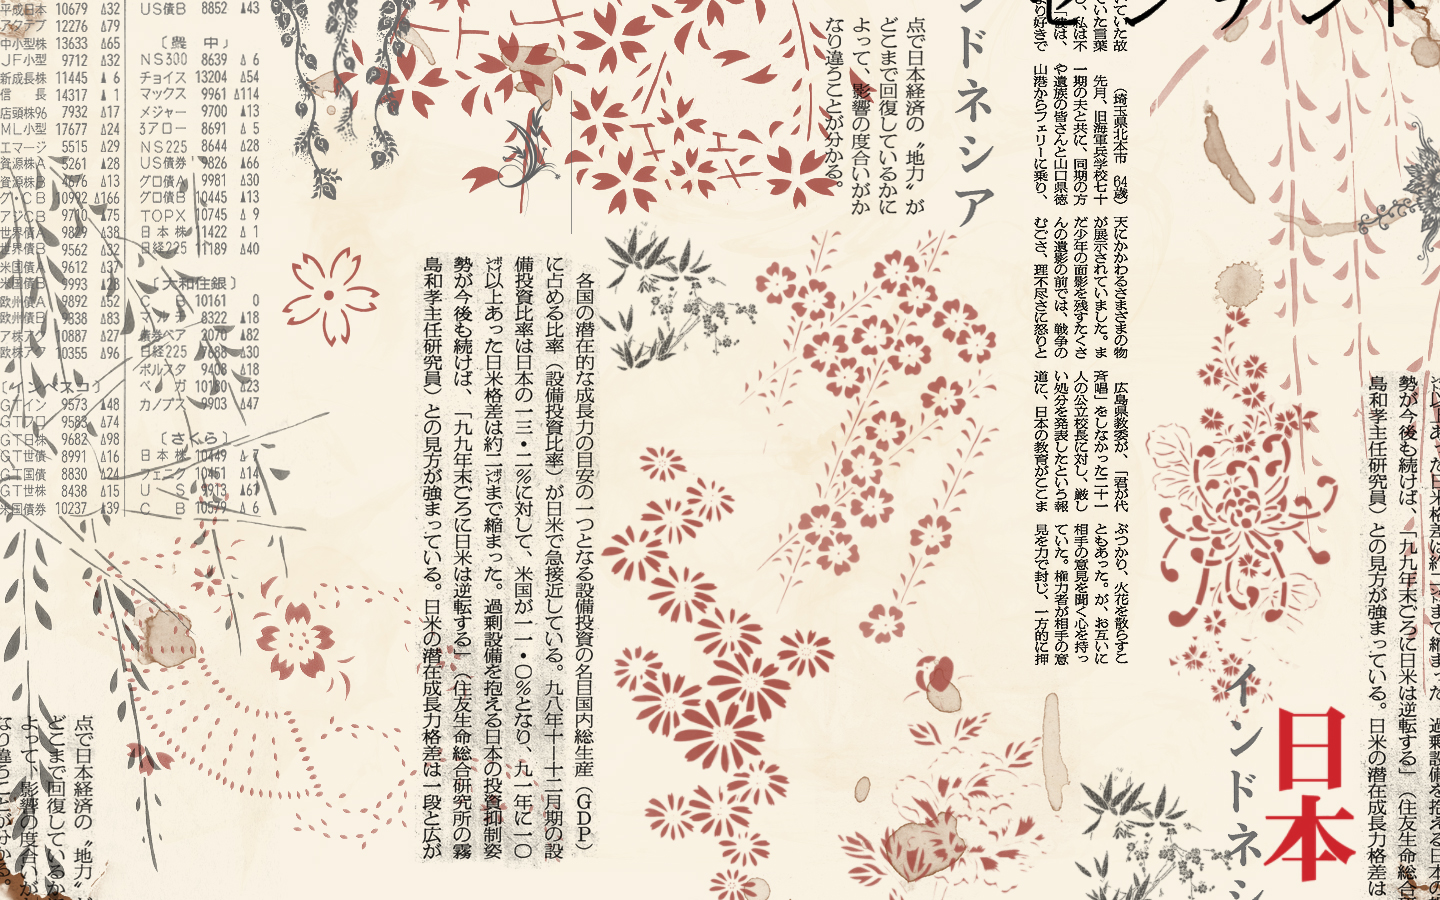 平成日本 10679 Δ32
アクテブ 12276 Δ79
中小型株 13633 Δ65
JF小型 9712 Δ32
新成長株 11445 ▲6
信 長 14317 ▲1
店頭株96 7932 Δ17
ML小型 17677 Δ24
エマージ 5515 Δ29
資源株A 5261 ▲28
資源株B 4676 Δ13
グ・CB 10992 Δ166
アジCB 9710 Δ75
世界債A 9829 Δ38
世界債B 9562 Δ32
米国債A 9612 Δ37
米国債B 9993 ▲23
欧州債A 9892 Δ52
欧州債B 9838 Δ83
ア株アク 10887 Δ27
欧株アク 10355 Δ96
〔インベスコ〕
GTイン 9573 ▲48
GTフロ 9583 Δ74
GT日株 9682 Δ98
GT世債 8991 Δ16
GT国債 8830 Δ24
GT世株 8438 Δ15
米国債券 10237 ▲39
US債B 8852 ▲43
NS300 8639 Δ6
チョイス 13204 Δ54
マックス 9961 Δ114
メジャー 9700 ▲13
3アロー 8691 Δ5
NS225 8644 Δ28
US債券 9826 ▲66
グロ債A 9981 Δ30
グロ債B 10445 Δ13
TOPX 10745 Δ9
日本株 11422 Δ1
日経225 11189 Δ40
〔大和住銀〕
C B 10161 0
マルチ 8322 ▲18
債券ベア 2070 ▲82
日経225 7688 Δ30
ポルスタ 9408 Δ18
ベ ガ 10180 Δ23
カノプス 9903 Δ47
〔さくら〕
日本株 10449 Δ7
フェニク 10451 Δ14
U S 9913 Δ61
C B 10579 Δ6
各国の潜在的な成長力の目安の一つとなる設備投資の名目国内総生産(GDP)
に占める比率(設備投資比率)が日米で急接近している。九八年十―十二月期の設
備投資比率は日本の一三・二%に対して、米国が一一・〇%となり、九一年に一〇
㌽以上あった日米格差は約二㌽まで縮まった。過剰設備を抱える日本の投資抑制姿
勢が今後も続けば、「九九年末ごろに日米は逆転する」(住友生命総合研究所の霧
島和孝主任研究員)との見方が強まっている。日米の潜在成長力格差は一段と広が
点で日本経済の〝地力〟が
どこまで回復しているかに
よって、影響の度合いがか
なり違うことが分かる。
ンドネシア
センテンド
ていた故
ていた言葉
、私は不
「彼は、
り好きで
(埼玉県北本市 64歳)
先月、旧海軍兵学校七十
一期の夫と共に、同期の方
や遺族の皆さんと山口県徳
山港からフェリーに乗り、
天にかかわるさまざまの物
が展示されていました。ま
だ少年の面影を残すたくさ
んの遺影の前では、戦争の
むごさ、理不尽さに怒りと
広島県教委が、「君が代
斉唱」をしなかった二十一
人の公立校長に対し、厳し
い処分を発表したという報
道に、日本の教育がここま
ぶつかり、火花を散らすこ
ともあった。が、お互いに
相手の意見を聞く心を持っ
ていた。権力者が相手の意
見を力で封じ、一方的に押
インドネシ
日本
㌽以上あった日米格差は約二㌽まで縮まった。過剰設備を抱える日本の
勢が今後も続けば、「九九年末ごろに日米は逆転する」(住友生命総合
島和孝主任研究員)との見方が強まっている。日米の潜在成長力格差は
点で日本経済の〝地力〟
どこまで回復しているか
よって、影響の度合いが
なり違うことが分かる。